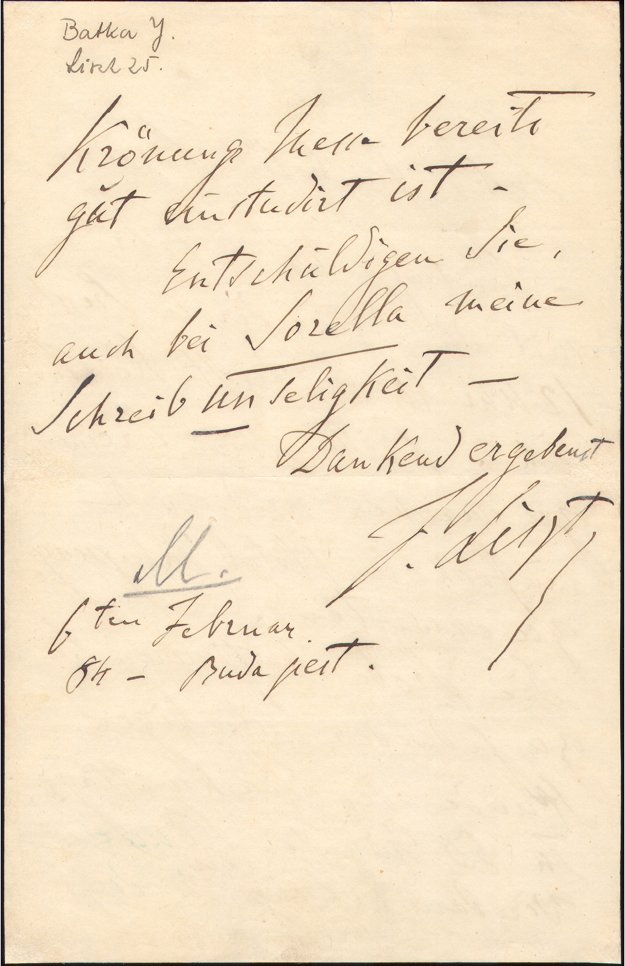 Batka J.
Liszt 25.
Krönungs Messe bereits
gut einstudirt ist –
Entschuldigen Sie,
auch bei Sorella meine
Schreibunseligkeit –
Dankend ergebenst
F. Liszt
M.
6ten Februar.
84 – Budapest.